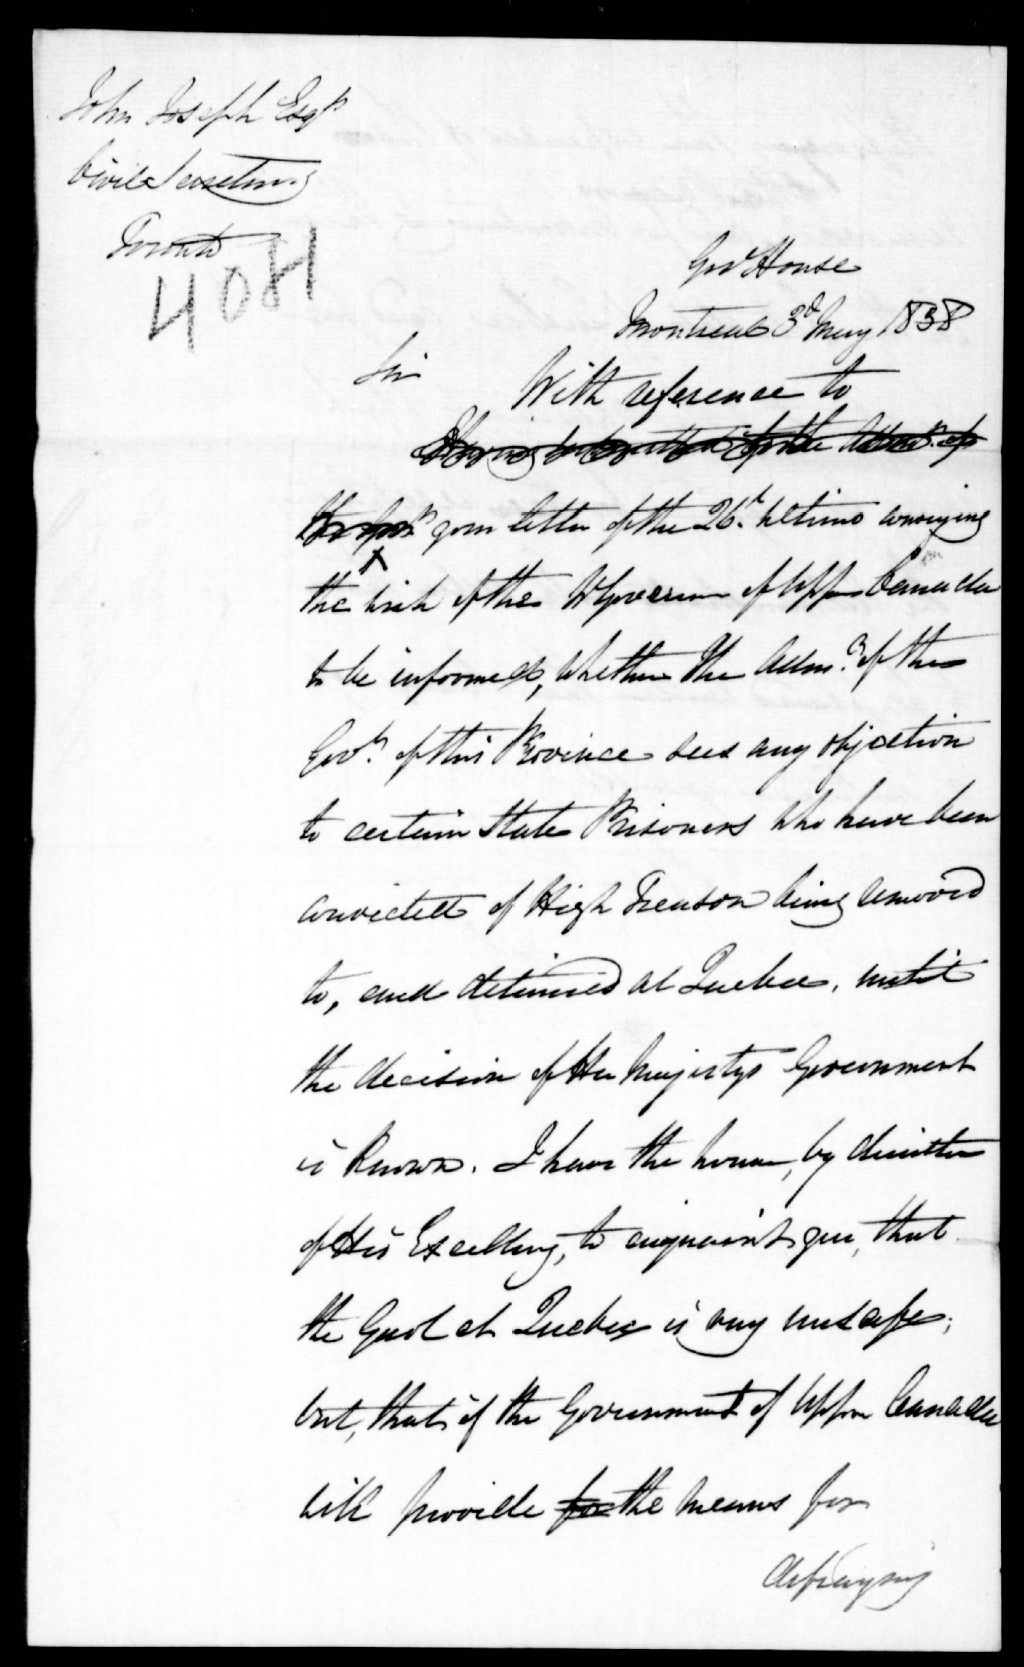 John Joseph Esqr
Civil Secretary
Toronto
4081
Govt House
Montreal 3d May 1838
Sir
With reference to
Having submitted to the Admr. of
the Govt your letter of the 26th. Ultimo conveying
the wish of the Lt Governor of Upper Canada
to be informed, whether the Admr. of the
Govt. of this Province sees any objection
to certain State Prisoners who have been
convicted of High Treason being removed
to, and detained at Quebec, until
the decision of Her Majestys Government
is Known. I have the honor, by direction
of His Excellency, to acquaint you, that
the Gaol at Quebec is very unsafe;
but, that if the Government of Upper Canada
will provide for the means for
defraying